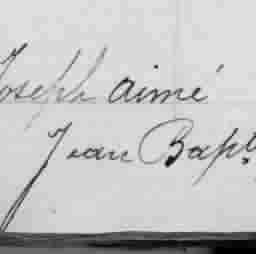 Joseph aimé
Jean Bapt